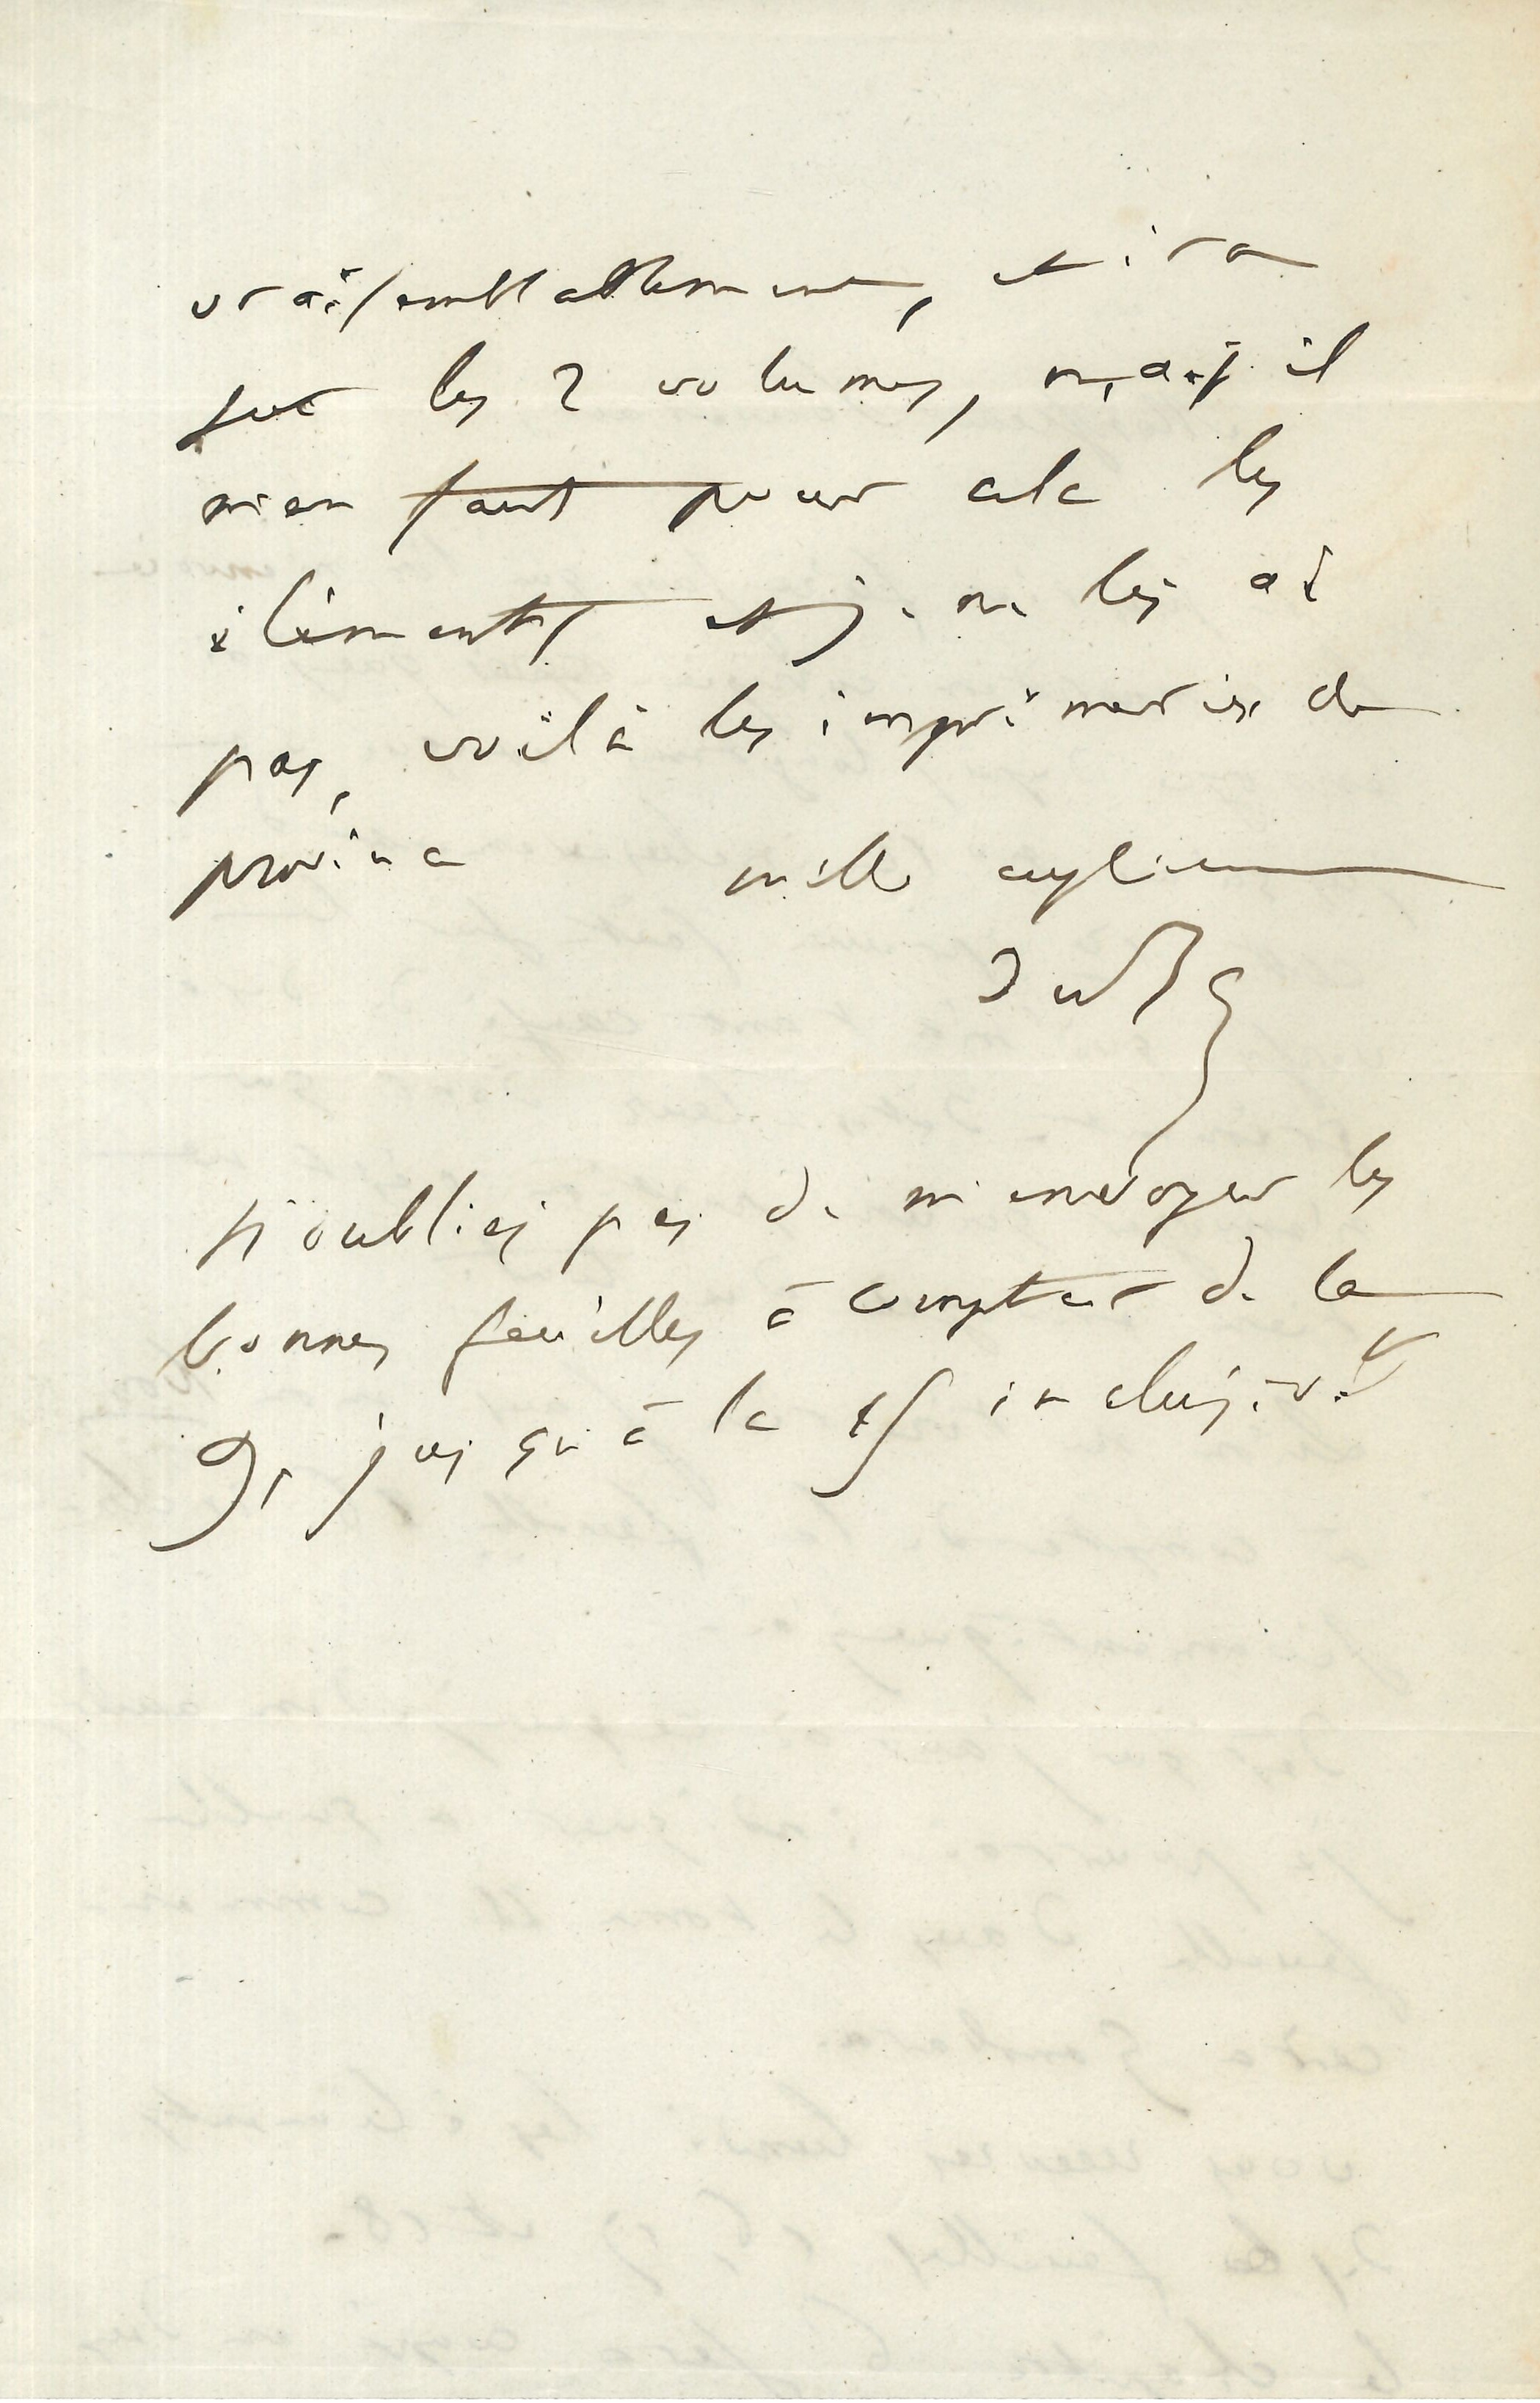 vraisemblablement, et ira
sur les 2 volumes, mais il
m'en faut pour cela les
éléments et je ne les ai
pas, voilà les imprimeries de
province mille
n'oubliez pas de m'envoyer les
bonnes feuilles à compter de la
9, jusqu'à la inclusivt